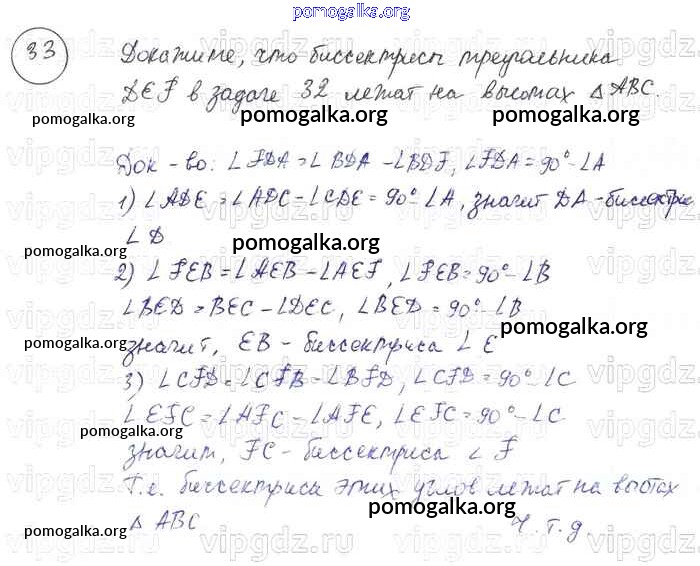 pomogalka.org
33
Докажите, что биссектрисы треугольника
DEF в задаче 32 лежат на высотах △ ABC.
pomogalka.org pomogalka.org pomogalka.org
Док-во: ∠ FDA = ∠ BDA - ∠BDF, ∠ FDA = 90° - ∠A
1) ∠ADE = ∠ADC - ∠CDE = 90° - ∠A, значит DA - биссектриса
∠ D
pomogalka.org pomogalka.org
2) ∠ FEB = ∠AEB - ∠AEF, ∠ FEB = 90° - ∠B
∠BED = BEC - ∠DEC, ∠BED = 90° - ∠B
pomogalka.org
значит, EB - биссектриса ∠ E
pomogalka.org
3) ∠ CFD = ∠CFB - ∠BFD, ∠CFD = 90° - ∠C
∠ EFC = ∠AFC - ∠AFE, ∠EFC = 90° - ∠C
pomogalka.org
значит, FC - биссектриса ∠ F
Т.е. биссектриса этих углов лежат на высотах
pomogalka.org
△ ABC
Ч.т.д
pomogalka.org pomogalka.org